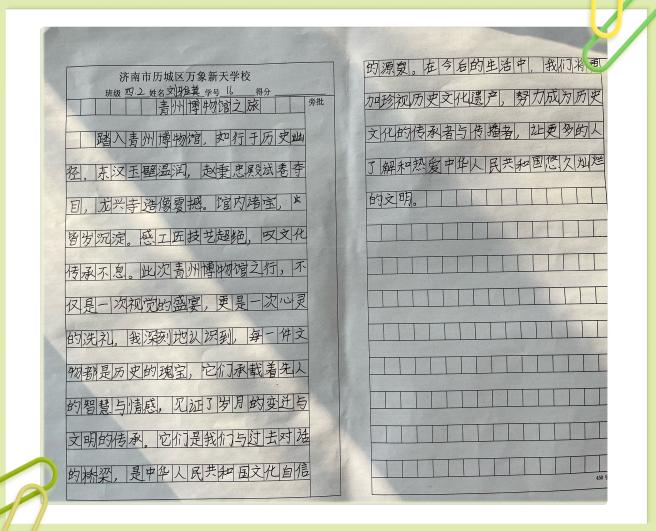 济南市历城区万象新天学校
班级 四.2 姓名 刘雅茗 学号 16 得分
旁批
青州博物馆之旅
踏入青州博物馆，如行于历史幽
径，东汉玉璧温润，赵秉忠殿试卷夺
目，龙兴寺造像震撼。馆内诸宝，
皆岁沉淀。感工匠技艺超绝，叹文化
传承不息。此次青州博物馆之行，不
仅是一次视觉的盛宴，更是一次心灵
的洗礼，我深刻地认识到，每一件文
物都是历史的瑰宝，它们承载着先人
的智慧与情感，见证了岁月的变迁与
文明的传承，它们是我们与过去对话
的桥梁，是中华人民共和国文化自信
的源泉。在今后的生活中，我们将更
加珍视历史文化遗产，努力成为历史
文化的传承者与传播者，让更多的人
了解和热爱中华人民共和国悠久灿烂
的文明。